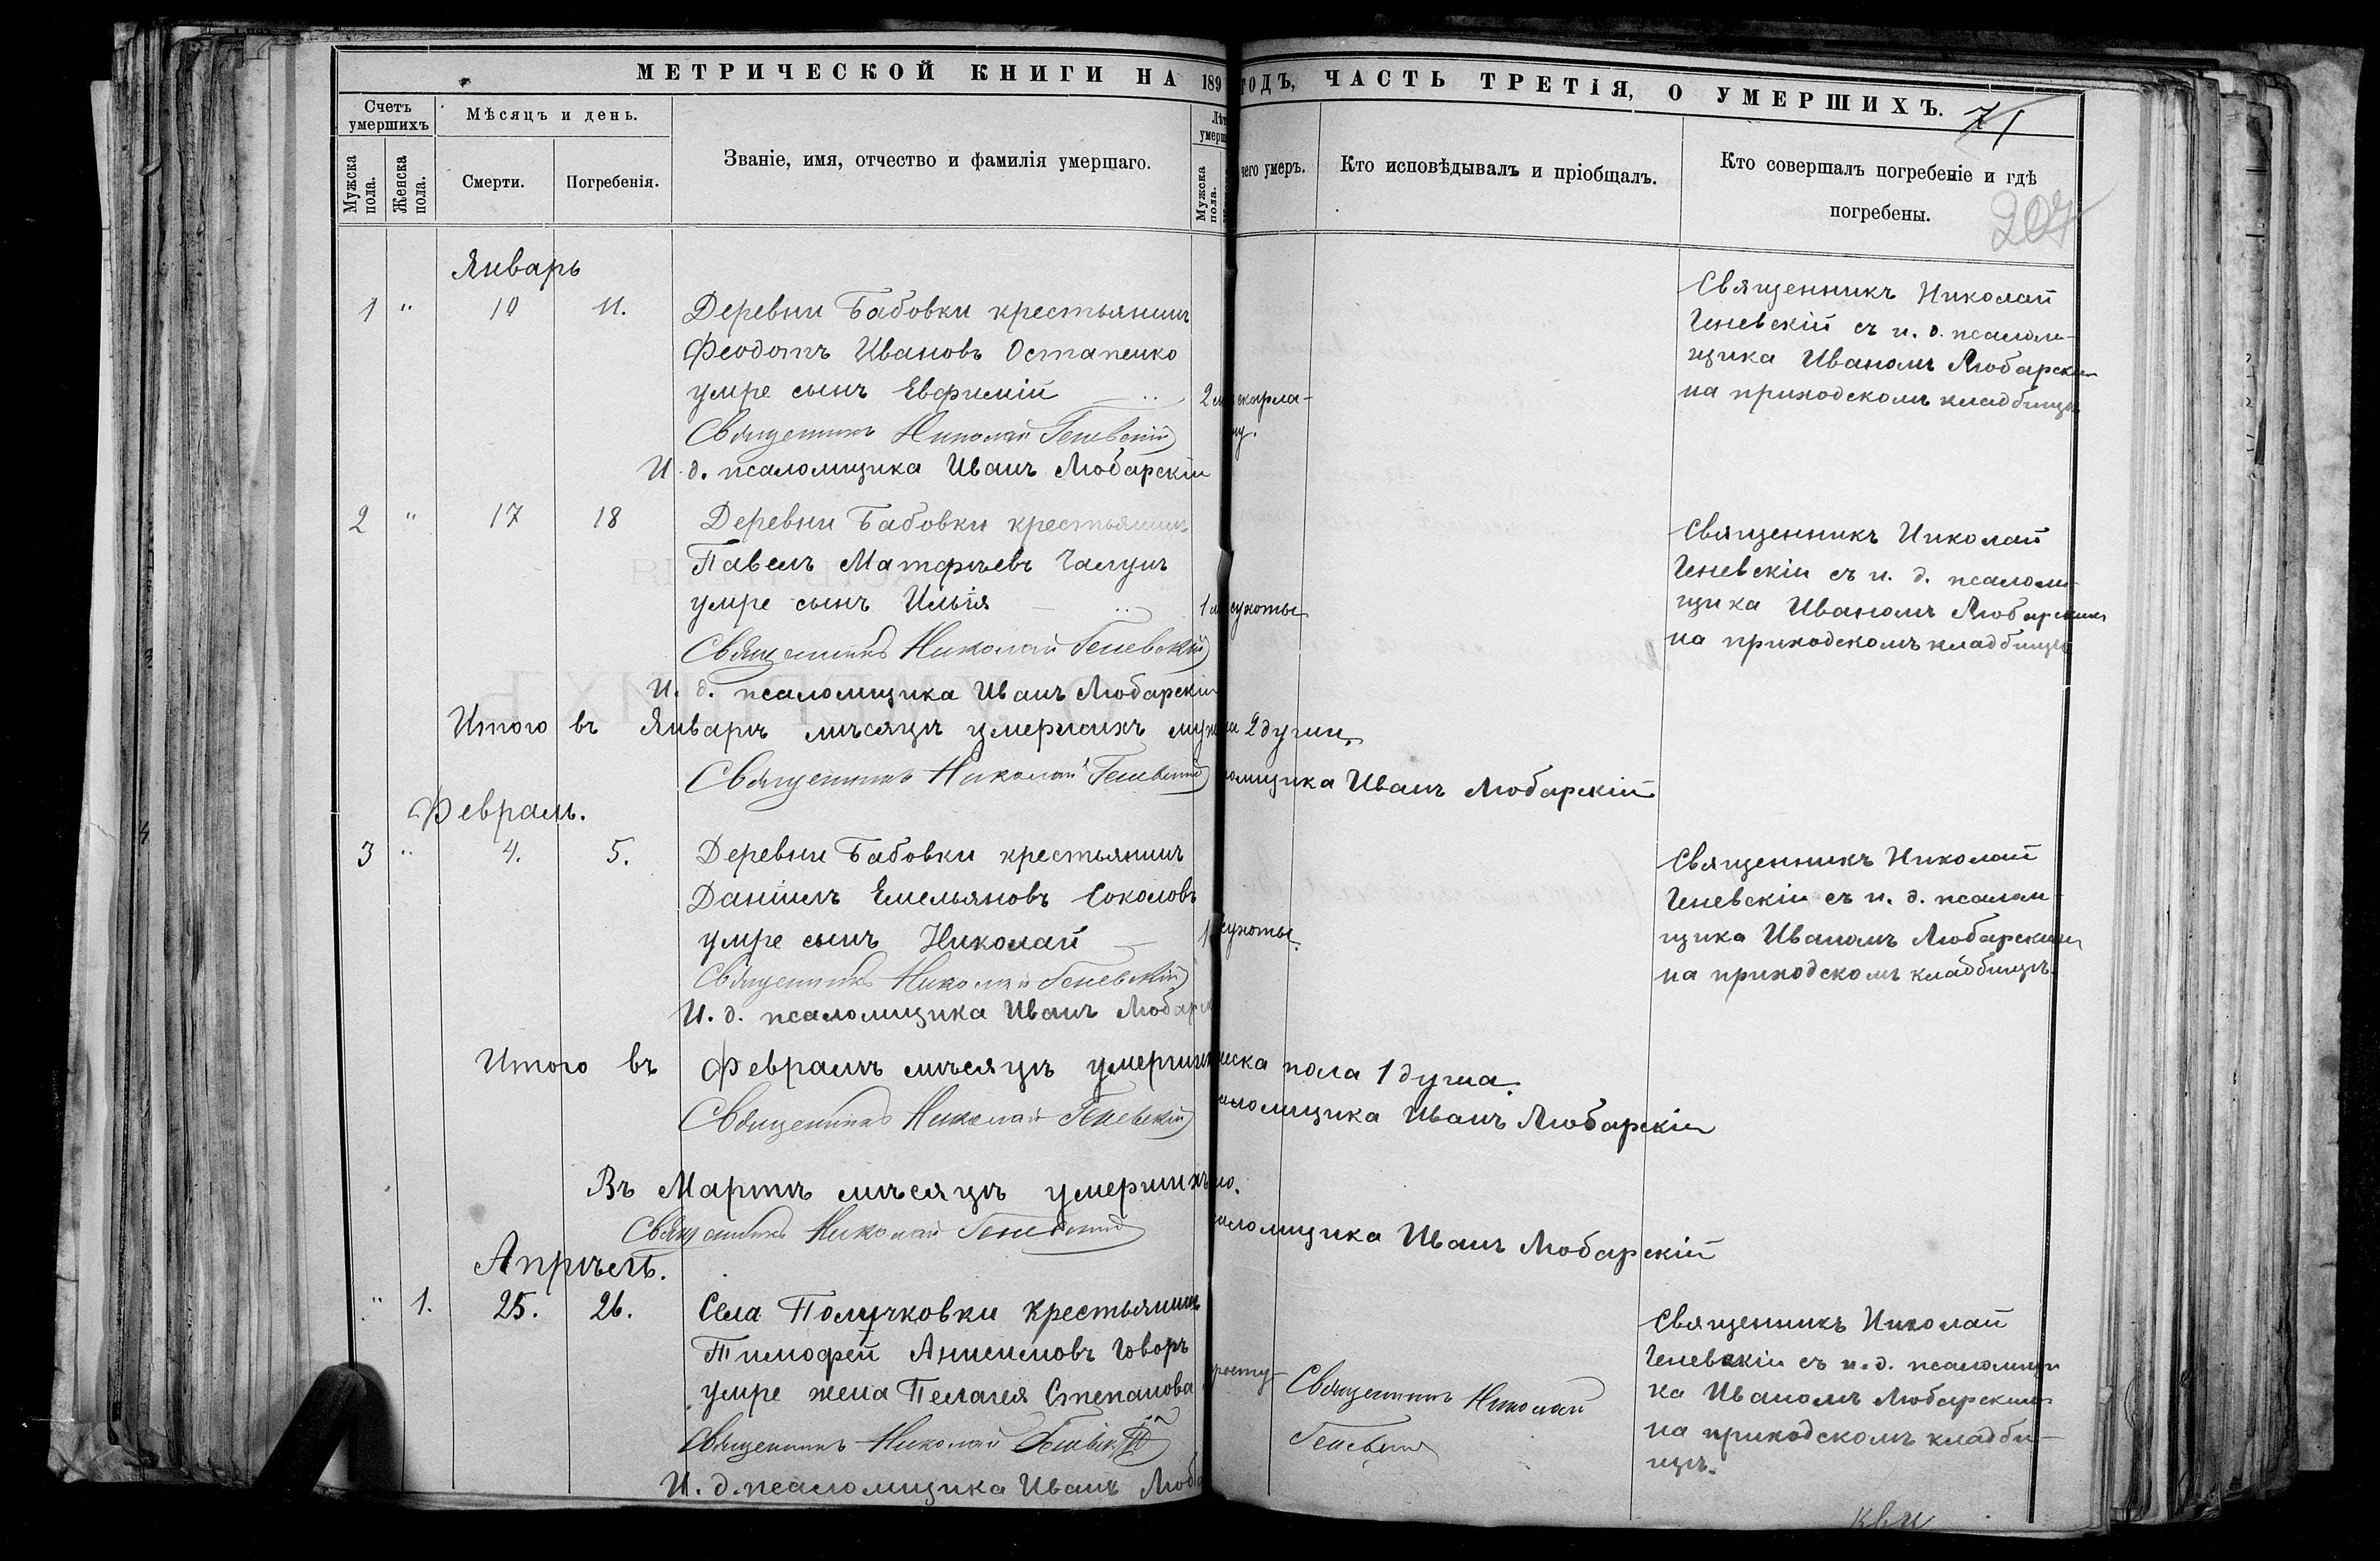 МЕТРИЧЕСКОЙ КНИГИ НА 189 ГОДЪ, ЧАСТЬ ТРЕТІЯ, О УМЕРШИХЪ.
71
207
Счетъ умершихъ
Мѣсяцъ и день.
Мужска пола.
Женска пола.
Смерти.
Погребенія.
Званіе, имя, отчество и фамилія умершаго.
Мужска пола.
чего умеръ.
Кто исповѣдывалъ и пріобщалъ.
Кто совершалъ погребеніе и гдѣ
погребены.
Январь
1 " 10 11.
Деревни Бабовки крестьянинъ
Феодотъ Ивановъ Остапенко
умре сынъ Евфимій
2
скарла-
Священникъ Николай Геневскій
И. д. псаломщика Иванъ Любарскій
Священникъ Николай
Геневскій съ и. д. псалом-
щика Иваномъ Любарским
на приходскомъ кладбищѣ
2 " 17 18
Деревни Бабовки крестьянинъ
Павелъ Матфѣевъ
умре сынъ Илья
1
сухоты
Священникъ Николай Геневскій
И. д. псаломщика Иванъ Любарскій
Священникъ Николай
Геневскій съ и. д. псалом-
щика Иваномъ Любарскимъ
на приходскомъ кладбищѣ
Итого въ Январѣ мѣсяцѣ умершихъ муж 2 души.
Священникъ Николай Геневскій
омщика Иванъ Любарскій
Февраль.
3 " 4. 5.
Деревни Бабовки крестьянинъ
Даніилъ Емельяновъ Соколовъ
умре сынъ Николай
1
сухоты.
Священникъ Николай Геневскій
И. д. псаломщика Иванъ Любарс
Священникъ Николай
Геневскій съ и. д. псалом-
щика Иваномъ Любарскимъ
на приходскомъ кладбищѣ.
Итого въ Февралѣ мѣсяцѣ умерших ска пола 1 душа.
Священникъ Николай Геневскій
аломщика Иванъ Любарскій
Въ Мартѣ мѣсяцѣ умершихъ
Священникъ Николай Геневскій
аломщика Иванъ Любарскій
Апрѣль.
" 1. 25. 26.
Села Получковки крестьянинъ
Тимофей Анисимовъ Говоръ
умре жена Пелагея Степанова
просту-
Священникъ Николай Геневскій
И. д. псаломщика Иванъ Люба
Священникъ Николай
Геневскій
Священникъ Николай
Геневскій съ и. д. псаломщи
ка Иваномъ Любарскимъ
на приходскомъ кладби-
щѣ.